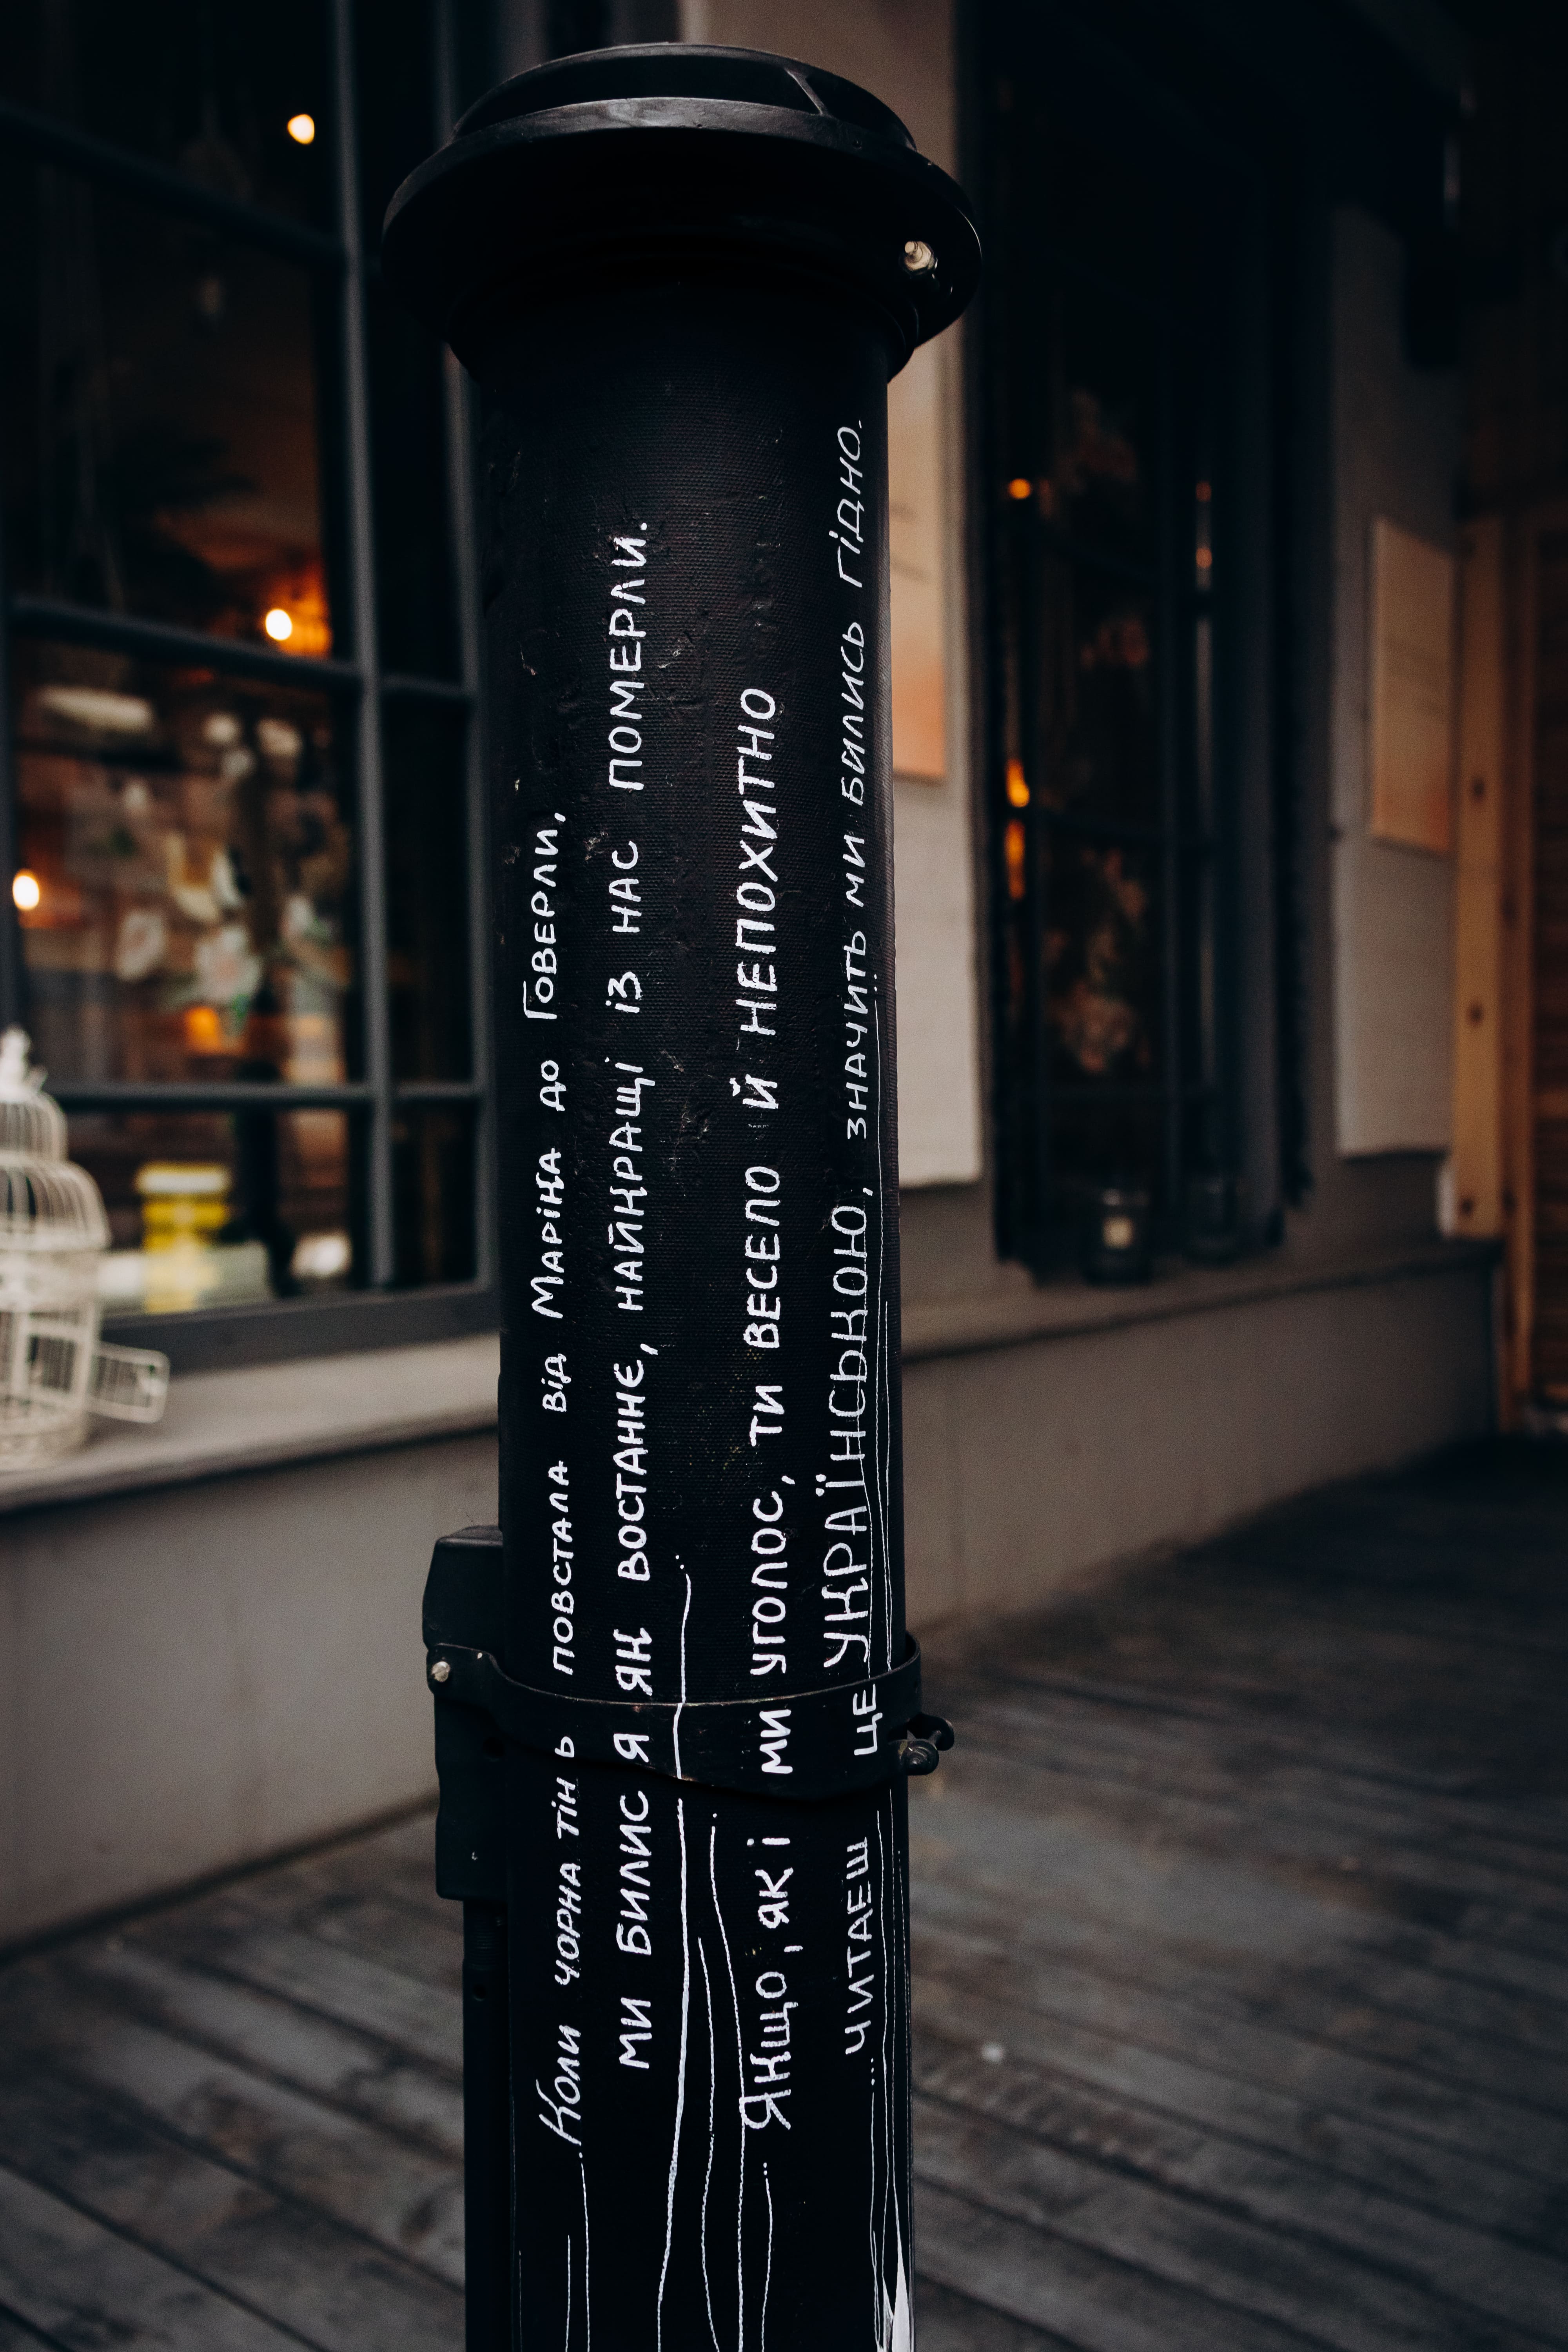 Коли чорна тінь повстала від Маріка до Говерли,
ми билися як востаннє, найкращі із нас померли.
Якщо, як і ми уголос, ти весело й непохитно
читаеш це УКРАЇНСЬКОЮ, значить ми бились гідно.